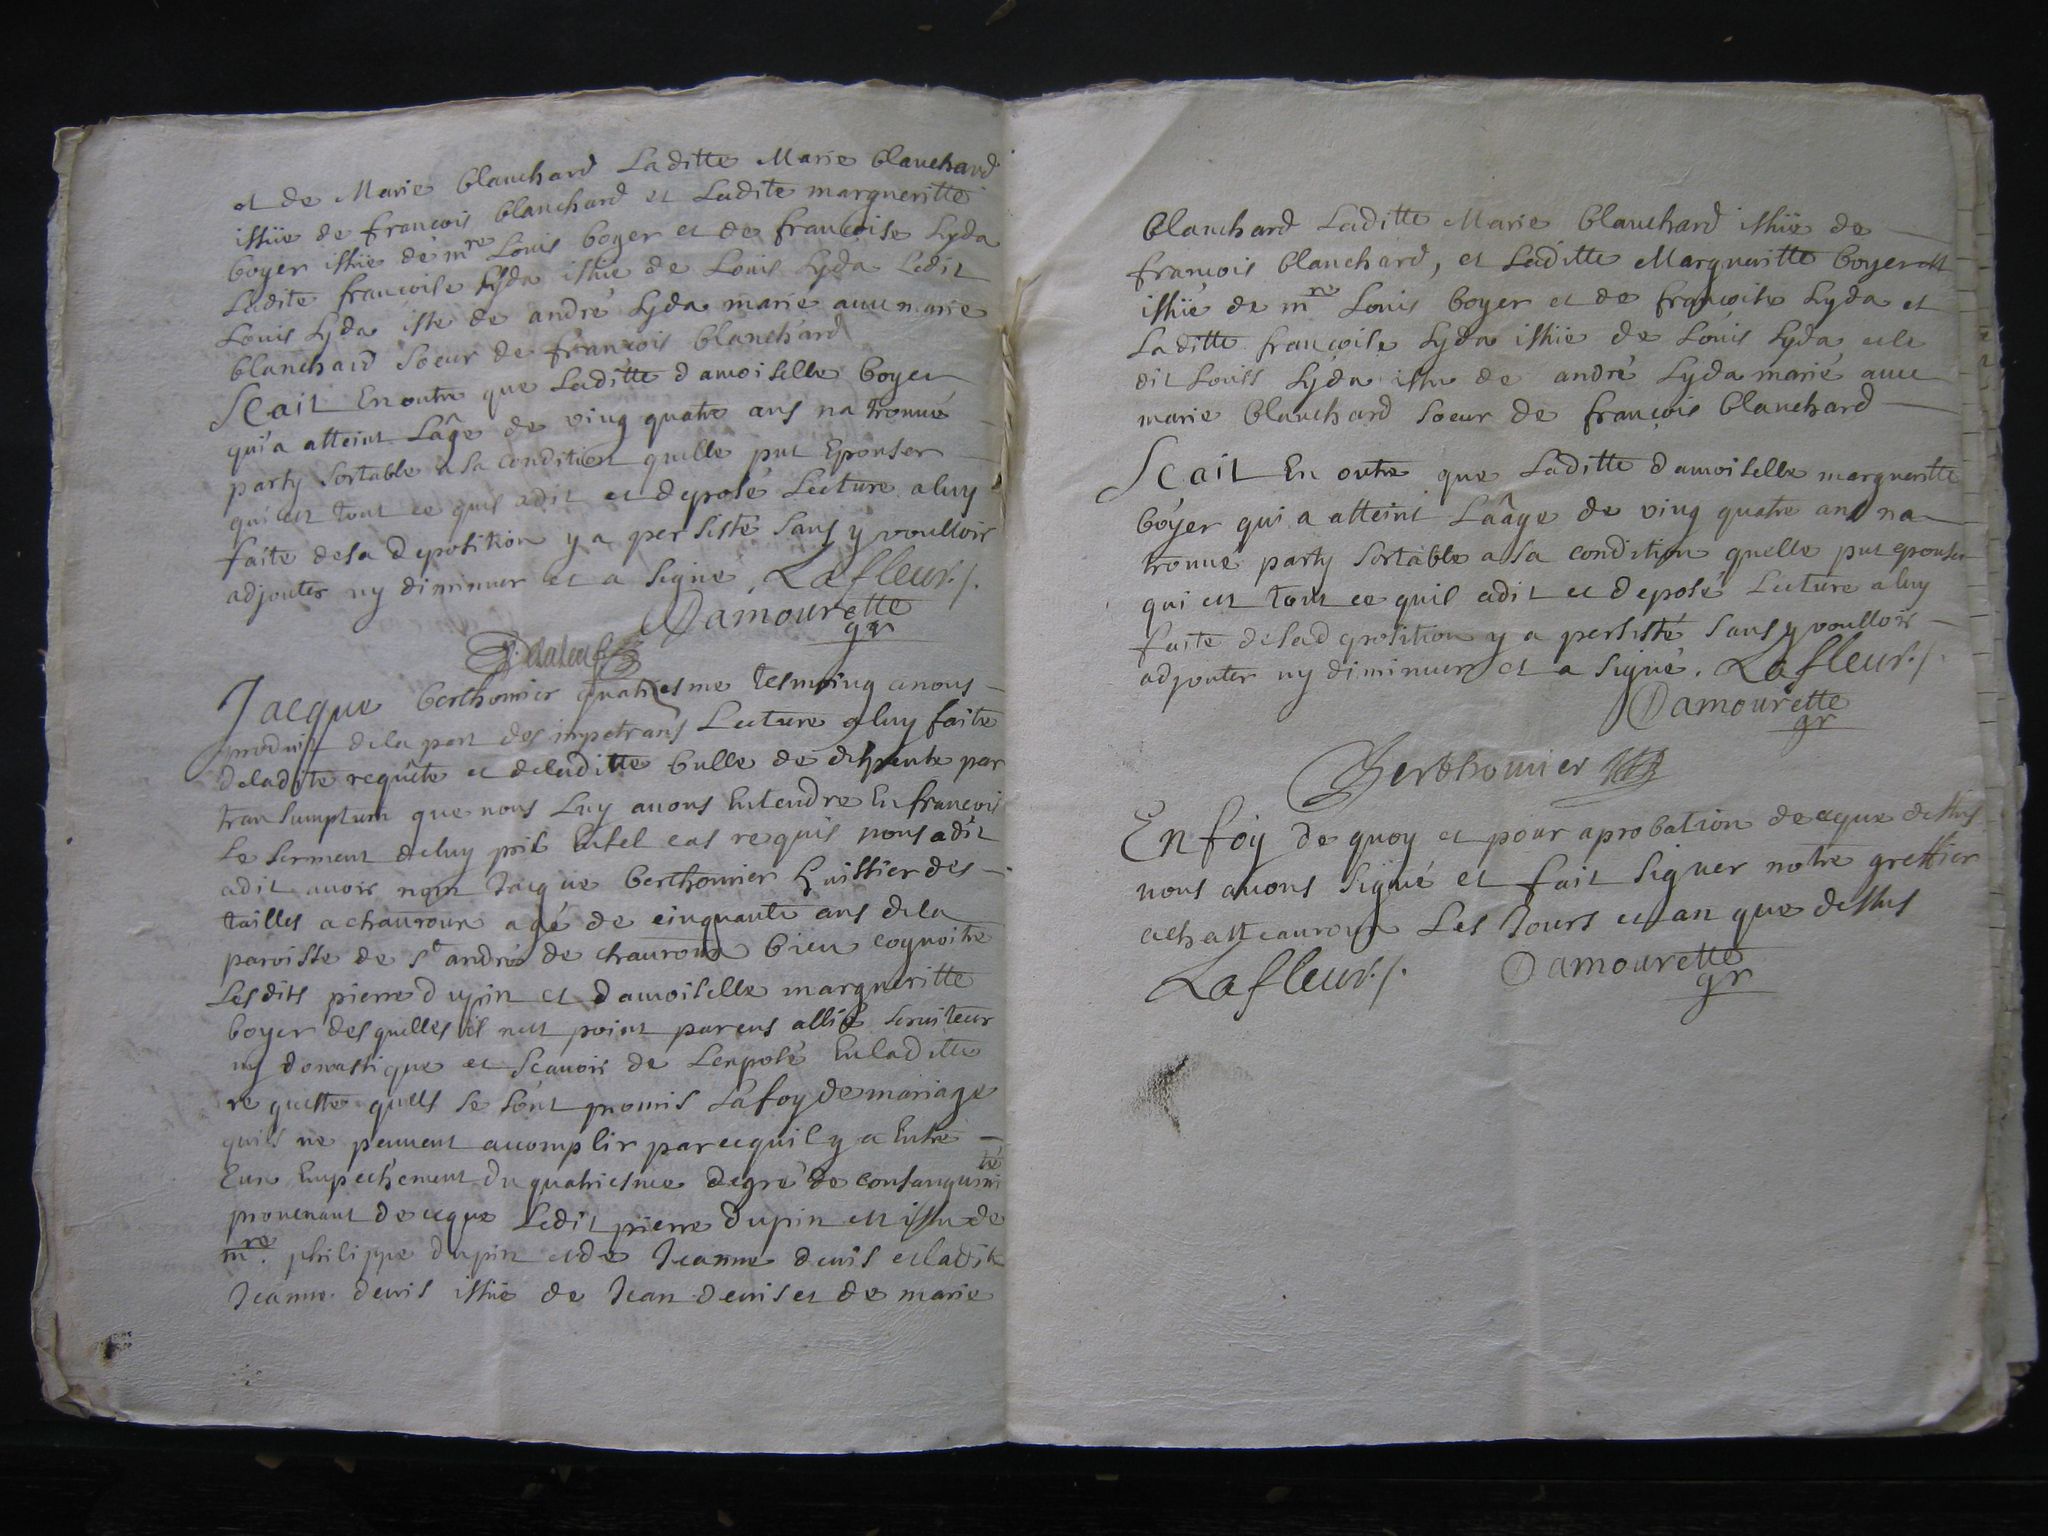 et de Marie blanchard Laditte Marie blanchard
issüe de francois blanchard et Ladite margueritte
boyer issüe de mre Louis boyer et de francoise Lyda
Ladite francoise Lyda issüe de Louis Lyda Ledit
Louis Lyda issu de andré Lyda marie auec marie
blanchard soeur de francois blanchard
Scait En outre que Laditte damoiselle boyer
qui a atteint Lâge de ving quatre ans na trouué
party sortable a sa condition quelle put Epouser
qui est tout ce quil adit et deposé Lecture a luy
faite de sa deposition y a persisté sans y voulloir
adjouter ny diminuer et a signé. Lafleur./.
Damourette
gr
Jacque berthomier quatriesme tesmoing a nous
produit de la part des impetrans Lecture a luy faite
de ladite requête et de laditte bulle de dispente par
transumptum que nous Luy auons Entendre En francois
Le serment de luy pris Entel cas requis nous adit
adit auoir nom Jacque berthomier huissier des
tailles a chauroux agé de cinquante ans de la
paroisse de st andré de chauroux bien cognoitre
Lesdits pierre dupin et damoiselle margueritte
boyer desquelles il nest point parens allié seruiteur
ny domastique et scauoir de Lexposé En laditte
requette quils se sont promis La foy de mariage
quils ne peuuent acomplir parcequil y a Entre
Eux Empechement du quatriesme degré de consanguinité
prouenant de ceque Ledit pierre dupin est issu de
mre. philippe dupin et de Jeanne denis et ladite
Jeanne denis issüe de Jean denis et de marie
blanchard Laditte Marie blanchard issüe de
francois blanchard, et Laditte Margueritte boyer est
issüe de mre Louis boyer et de francoise Lyda et
Laditte francoise Lyda issüe de Louis Lyda et le
dit Louis Lyda issu de andré Lyda marié auec
marie blanchard soeur de francois blanchard
Scait En outre que Laditte damoiselle margueritte
boyer qui a atteint Laâge de ving quatre ans na
trouue party sortable a sa condition quelle put epouser
qui est tout ce quil adit et deposé Lecture a luy
faite de sa deposition y a persisté sans y voulloir
adjouter ny diminuer et a signé. Lafleur./.
Damourette
gr
Berthomier
En foy de quoy et pour aprobation de ceque dessus
nous auons signé et fait signer notre greffier
a chatteauroux Les Jours et an que dessus
Lafleur./. Damourette
gr